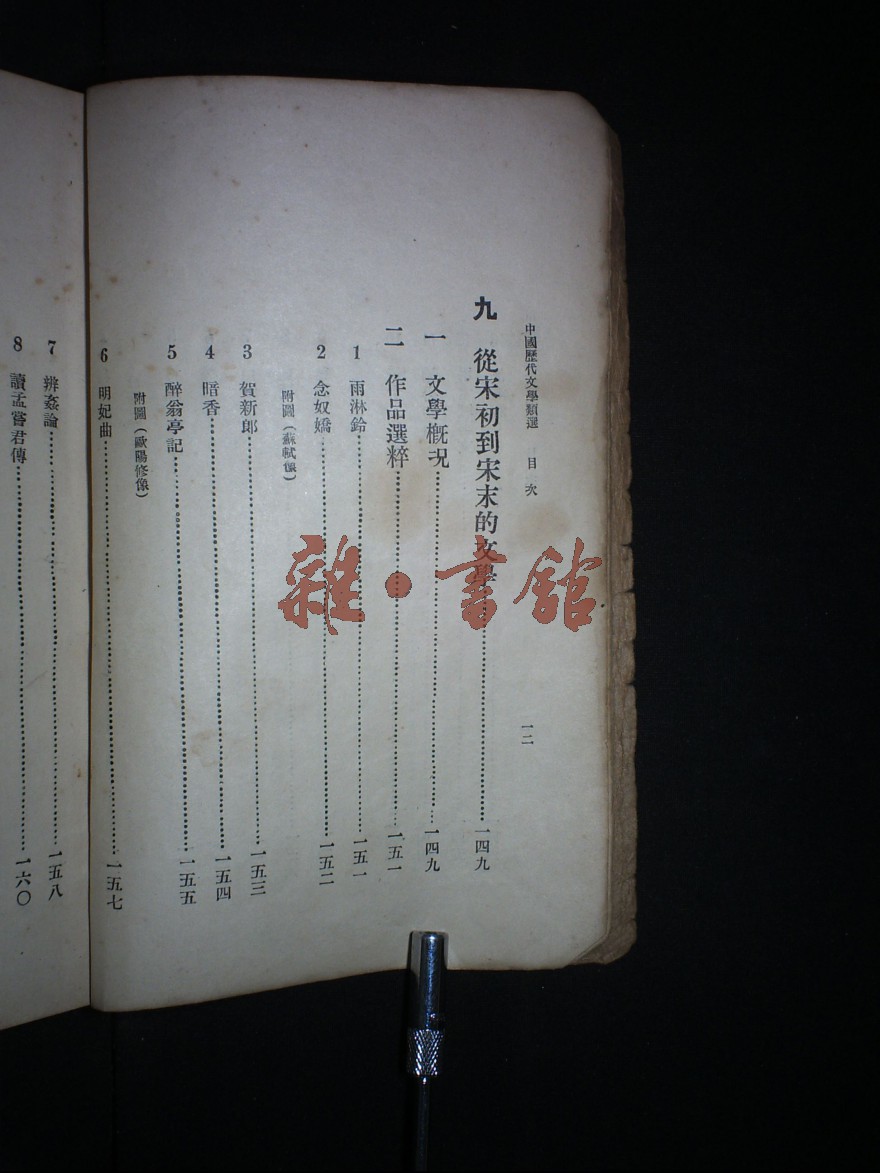 中國歷代文學類選 目次 一二
九 從宋初到宋末的文學 一四九
一 文學概況 一四九
二 作品選粹 一五一
1 雨淋鈴 一五一
2 念奴嬌 一五二
附圖（蘇軾像）
3 賀新郎 一五三
4 暗香 一五四
5 醉翁亭記 一五五
附圖（歐陽修像）
6 明妃曲 一五七
7 辨姦論 一五八
8 讀孟嘗君傳 一六〇
雜·書館